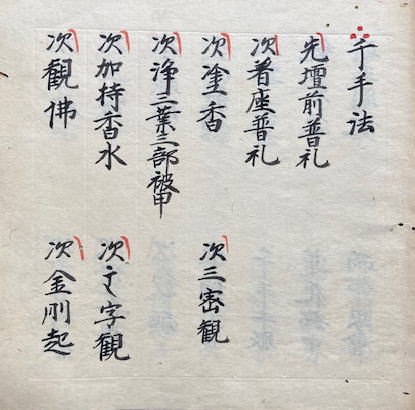 千手法
先壇前普礼
次着座普礼
次塗香　次三密観
次浄三業三部被甲
次加持香水　次字観
次観佛　次金剛起